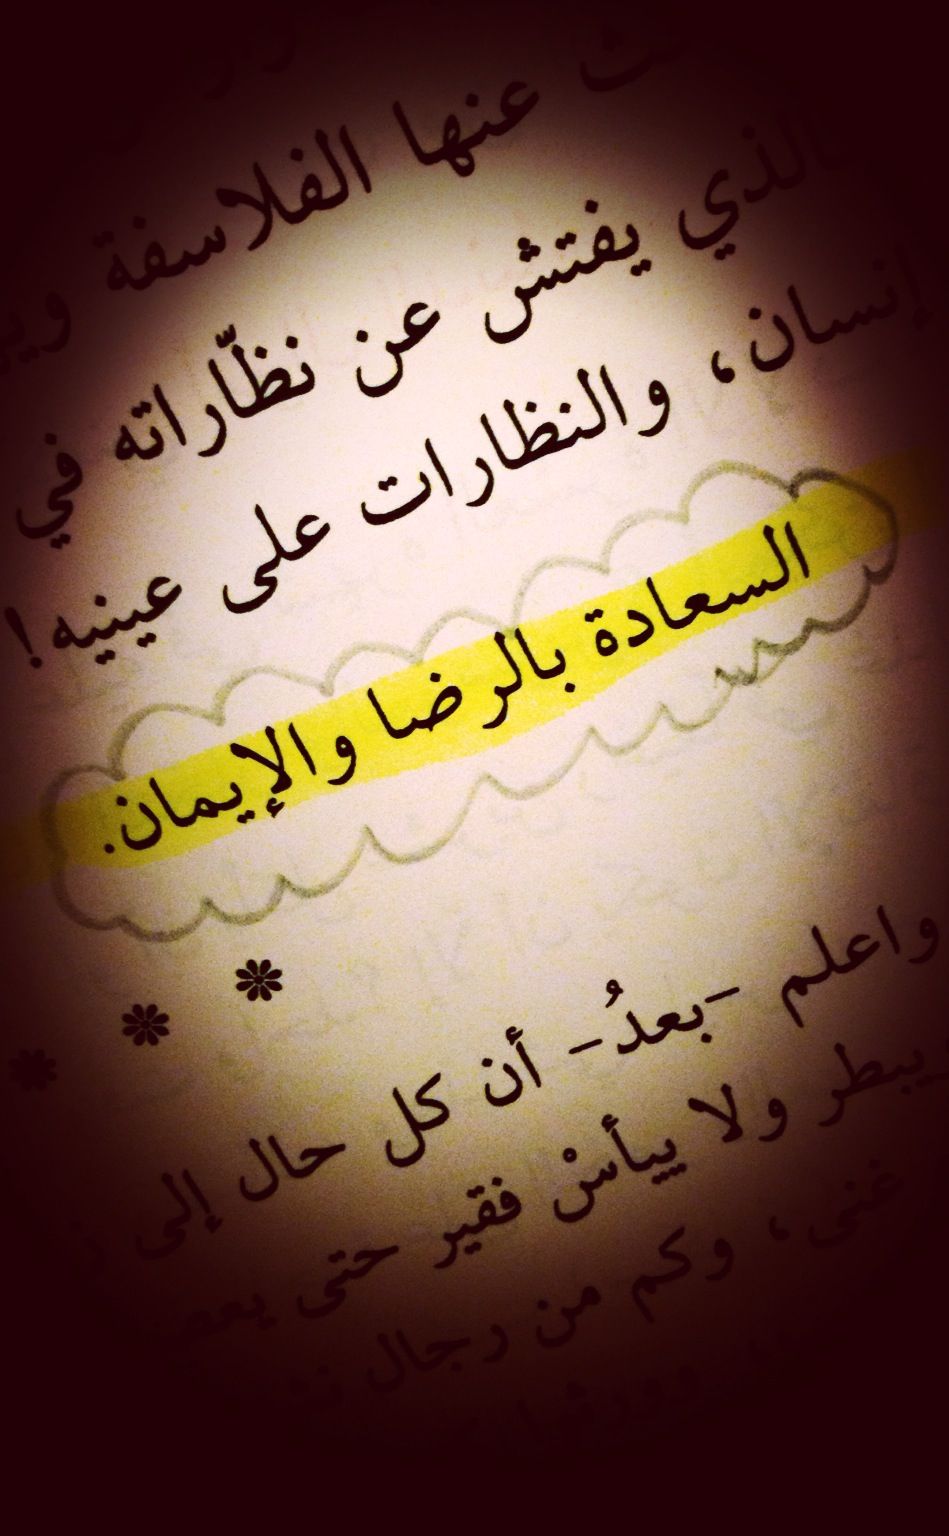 عنها الفلاسفة
كالذي يفتش عن نظّاراته في
إنسان، والنظارات على عينيه!
السعادة بالرضا والإيمان.
واعلم -بعدُ- أن كل حال إلى
يبطر ولا ييأسْ فقير حتى
غنى، وكم من رجال